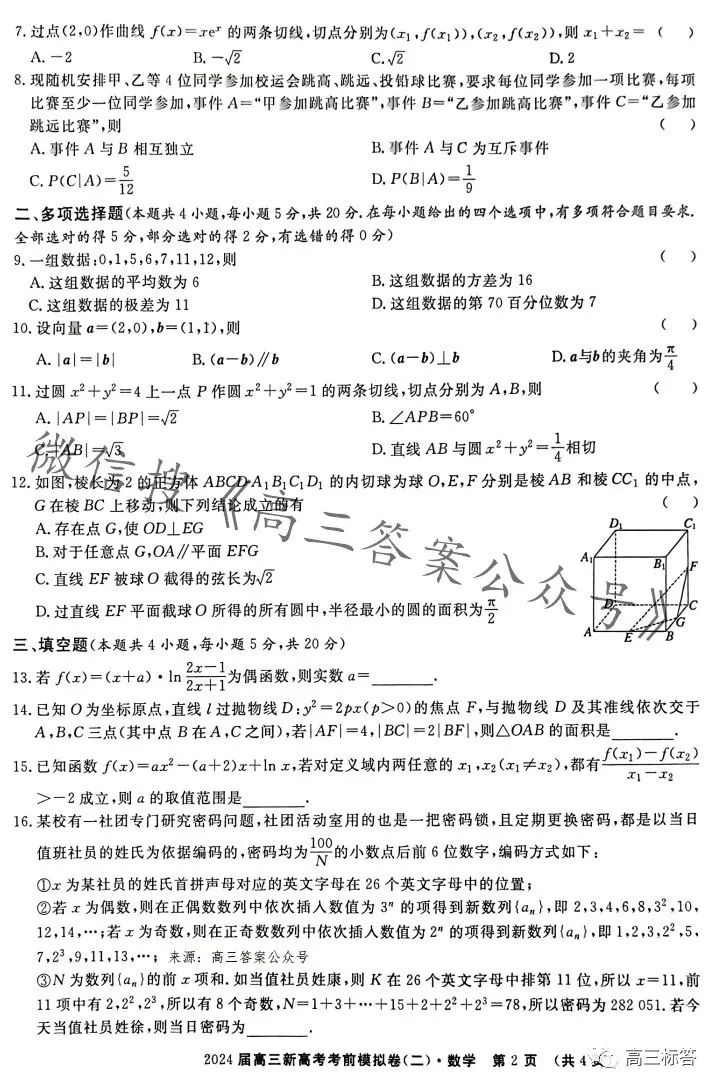 7.过点(2,0)作曲线 f(x)=xeˣ 的两条切线,切点分别为(x₁,f(x₁)),(x₂,f(x₂)),则 x₁+x₂=( )
A.-2 B.-√2 C.√2 D.2
8.现随机安排甲、乙等4位同学参加校运会跳高、跳远、投铅球比赛,要求每位同学参加一项比赛,每项
比赛至少一位同学参加,事件A=“甲参加跳高比赛”,事件B=“乙参加跳高比赛”,事件C=“乙参加
跳远比赛”,则 ( )
A.事件A与B相互独立 B.事件A与C为互斥事件
C.P(C|A)=5/12 D.P(B|A)=1/9
二、多项选择题(本题共4小题,每小题5分,共20分.在每小题给出的四个选项中,有多项符合题目要求.
全部选对的得5分,部分选对的得2分,有选错的得0分)
9.一组数据:0,1,5,6,7,11,12,则 ( )
A.这组数据的平均数为6 B.这组数据的方差为16
C.这组数据的极差为11 D.这组数据的第70百分位数为7
10.设向量a=(2,0),b=(1,1),则 ( )
A.|a|=|b| B.(a-b)∥b C.(a-b)⊥b D.a与b的夹角为π/4
11.过圆x²+y²=4上一点P作圆x²+y²=1的两条切线,切点分别为A,B,则 ( )
A.|AP|=|BP|=√2 B.∠APB=60°
C.|AB|=√3 D.直线AB与圆x²+y²=1/4相切
12.如图,棱长为2的正方体ABCD-A₁B₁C₁D₁的内切球为球O,E,F分别是棱AB和棱CC₁的中点,
G在棱BC上移动,则下列结论成立的有 ( )
A.存在点G,使OD⊥EG
B.对于任意点G,OA∥平面EFG
C.直线EF被球O截得的弦长为√2
D.过直线EF平面截球O所得的所有圆中,半径最小的圆的面积为π/2
D₁ C₁
A₁ B₁
F
D C
G
A E B
微信搜《高三答案公众号》
三、填空题(本题共4小题,每小题5分,共20分)
13.若f(x)=(x+a)·ln (2x-1)/(2x+1)为偶函数,则实数a=________.
14.已知O为坐标原点,直线l过抛物线D:y²=2px(p>0)的焦点F,与抛物线D及其准线依次交于
A,B,C三点(其中点B在A,C之间),若|AF|=4,|BC|=2|BF|,则△OAB的面积是________.
15.已知函数f(x)=ax²-(a+2)x+ln x,若对定义域内两任意的x₁,x₂(x₁≠x₂),都有(f(x₁)-f(x₂))/(x₁-x₂)
>-2成立,则a的取值范围是________.
16.某校有一社团专门研究密码问题,社团活动室用的也是一把密码锁,且定期更换密码,都是以当日
值班社员的姓氏为依据编码的,密码均为100/N的小数点后前6位数字,编码方式如下:
①x为某社员的姓氏首拼声母对应的英文字母在26个英文字母中的位置;
②若x为偶数,则在正偶数数列中依次插入数值为3ⁿ的项得到新数列{aₙ},即2,3,4,6,8,3²,10,
12,14,…;若x为奇数,则在正奇数数列中依次插入数值为2ⁿ的项得到新数列{aₙ},即1,2,3,2²,5,
7,2³,9,11,13,…; 来源:高三答案公众号
③N为数列{aₙ}的前x项和.如当值社员姓康,则K在26个英文字母中排第11位,所以x=11,前
11项中有2,2²,2³,所以有8个奇数,N=1+3+…+15+2+2²+2³=78,所以密码为282 051.若今
天当值社员姓徐,则当日密码为________.
2024届高三新高考考前模拟卷(二)·数学 第2页 (共4页
高三标答